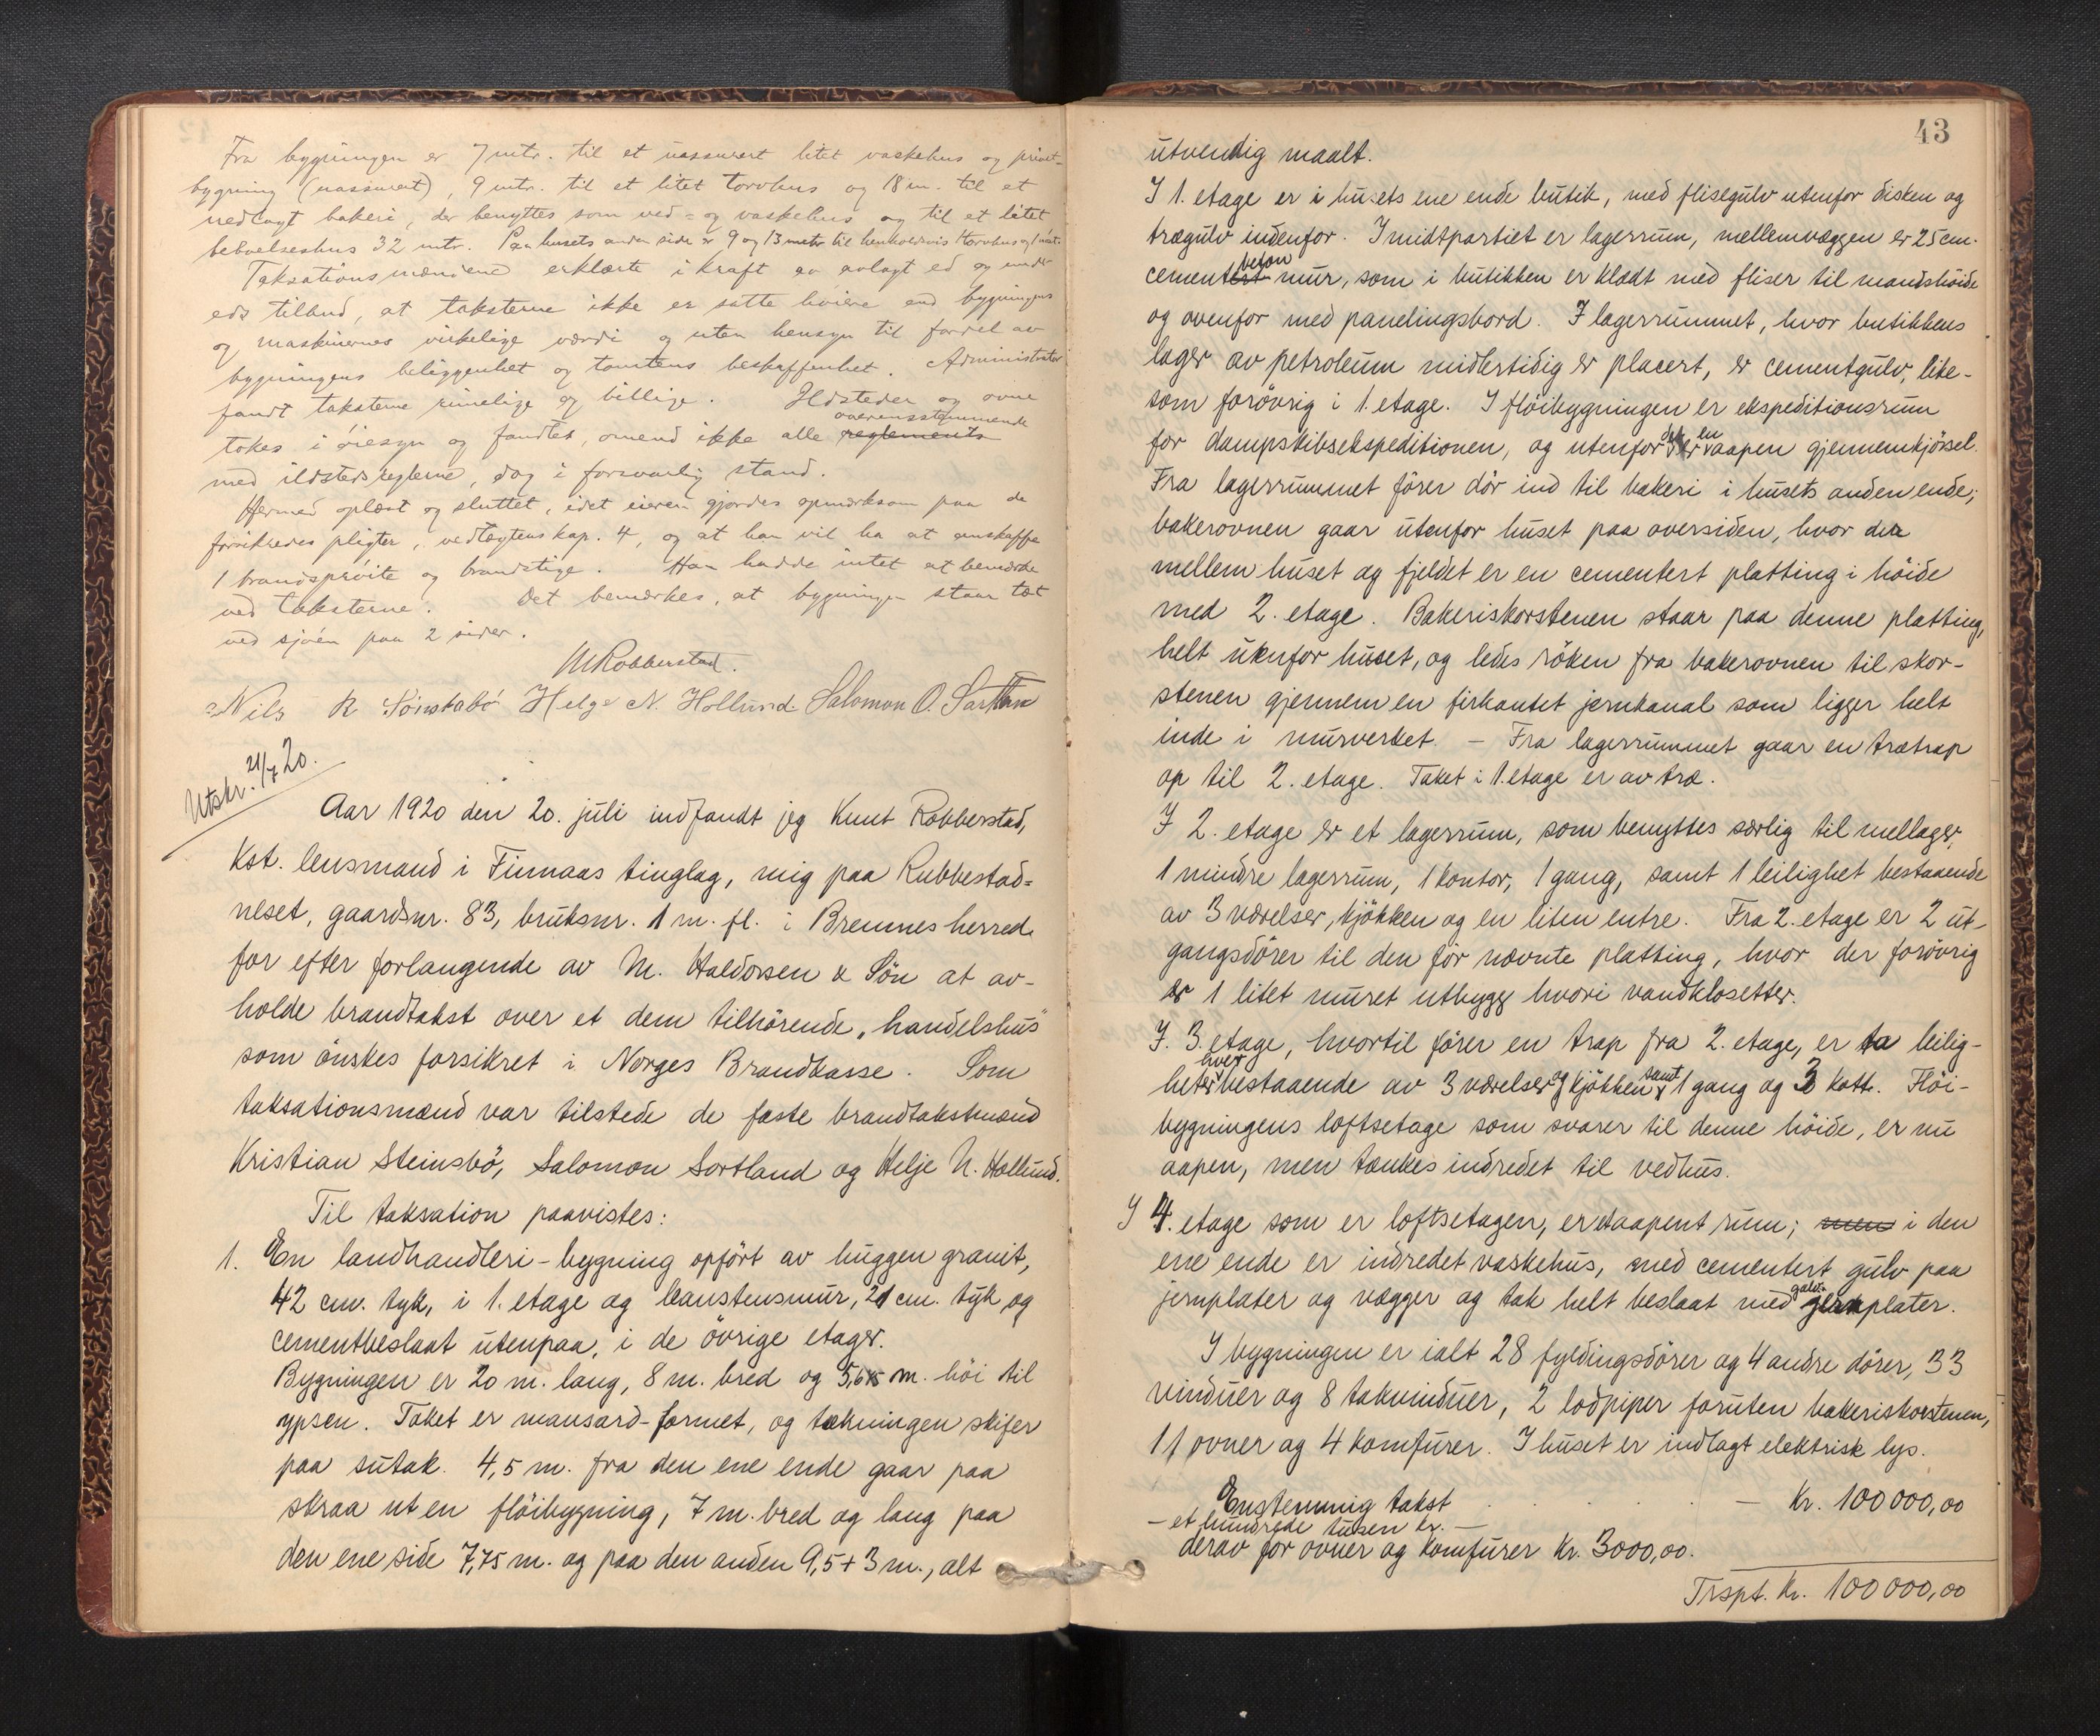 Fra bygningen er 7 mtr. til et uassurert litet vaskehus og privet-
bygning (uassurert), 9 mtr. til et litet torvhus og 18 m. til et
nedlagt bakeri, der benyttes som ved- og vaskehus og til et litet
bebuelseshus 32 mtr. Paa husets anden side er 9 og 13 metr til henholdsvis torvhus og
Taksationsmændene erklærte i kraft av avlagt ed og under
eds tilbud, at taksterne ikke er satte høiere end bygningens
og maskinernes virkelige værdi og uten hensyn til fordel av
bygningens beliggenhet og tomtens beskaffenhet. Administrator
fandt taksterne rimelige og billige. Ildsteder og ovne
overensstemmende
tokes i øiesyn og fandtes, omend ikke alle reglements
med ildstedsreglerne, dog i forsvarlig stand.
Hermed oplæst og sluttet, idet eieren gjordes opmerksom paa de
forsikredes pligter, vedtægtens kap. 4, og at han vil ha at anskaffe
1 brandsprøite og brandstige. Han hadde intet at bemerke
ved taksterne. Det bemerkes, at bygningen staar tæt
ved sjøen paa 2 sider.
Robberstad.
Nils R Sønstabø Helge N. Hollund Salomon O. Sortland
Utskr. 21/7 20.
Aar 1920 den 20. juli indfandt jeg Knut Robberstad,
kst. lensmand i Finnaas tinglag, mig paa Rubbestad-
neset, gaardsnr. 83, bruksnr. 1 m. fl. i Bremnes herred
for efter forlangende av M. Haldorsen & Søn at av-
holde brandtakst over et dem tilhørende „handelshus"
som ønskes forsikret i Norges Brandkasse. Som
taksationsmænd var tilstede de faste brandtakstmænd
Kristian Steinsbø, Salomon Sortland og Helje N. Hollund.
Til taksation paavistes:
1. En landhandleri-bygning opført av huggen granit,
42 cm. tyk, i 1. etage og leanstensmur, 21 cm. tyk og
cementbeslaat utenpaa, i de øvrige etager.
Bygningen er 20 m. lang, 8 m. bred og 5,65 m. høi til
ypsen. Taket er mansard-formet, og tækningen skifer
paa sutak. 4,5 m. fra den ene ende gaar paa
skraa ut en fløibygning, 7 m. bred og lang paa
den ene side 7,75 m. og paa den anden 9,5 + 3 m., alt
43
utvendig maalt.
I 1. etage er i husets ene ende butik, med flisegulv utenfor disken og
trægulv indenfor. I midtpartiet er lagerrum, mellemvæggen er 25 cm.
beton
cementert mur, som i butikken er klædt med fliser til mandshøide
og ovenfor med panelingsbord. I lagerrummet, hvor butikkens
lager av petroleum midlertidig er placert, er cementgulv, like-
som forøvrig i 1. etage. I fløibygningen er ekspeditionsrum
for dampskibsekspeditionen, og utenfor det er en aapen gjennemkjørsel.
Fra lagerrummet fører dør ind til bakeri i husets anden ende;
bakerovnen gaar utenfor huset paa oversiden, hvor der
mellem huset og fjeldet er en cementert platting i høide
med 2. etage. Bakeriskorstenen staar paa denne platting,
helt utenfor huset, og ledes røken fra bakerovnen til skor-
stenen gjennem en firkantet jernkanal som ligger helt
inde i murverket. – Fra lagerrummet gaar en trætrap
op til 2. etage. Taket i 1. etage er av træ.
I 2. etage er et lagerrum, som benyttes særlig til mellager,
1 mindre lagerrum, 1 kontor, 1 gang, samt 1 leilighet bestaaende
av 3 værelser, kjøkken og en liten entre. Fra 2. etage er 2 ut-
gangsdører til den før nævnte platting, hvor der forøvrig
er 1 litet muret utbygg hvori vandklosetter.
I 3. etage, hvortil fører en trap fra 2. etage, er to leilig-
heter hver bestaaende av 3 værelser og kjøkken samt 1 gang og 3 kott. Fløi-
bygningens loftsetage som svarer til denne høide, er nu
aapen, men tænkes indredet til vedhus.
I 4. etage som er loftsetagen, er et aapent rum; men i den
ene ende er indredet vaskehus, med cementert gulv paa
jernplater og vægger og tak helt beslaat med galv. jernplater.
I bygningen er ialt 28 fyldingsdører og 4 andre dører, 33
vinduer og 8 takvinduer, 2 lodpiper foruten bakeriskorstenen,
11 ovner og 4 komfurer. I huset er indlagt elektrisk lys.
Enstemmig takst . . . . . – Kr. 100 000,00
– et hundrede tusen kr. –
derav for ovner og komfurer Kr. 3000,00.
Trspt. Kr. 100 000,00